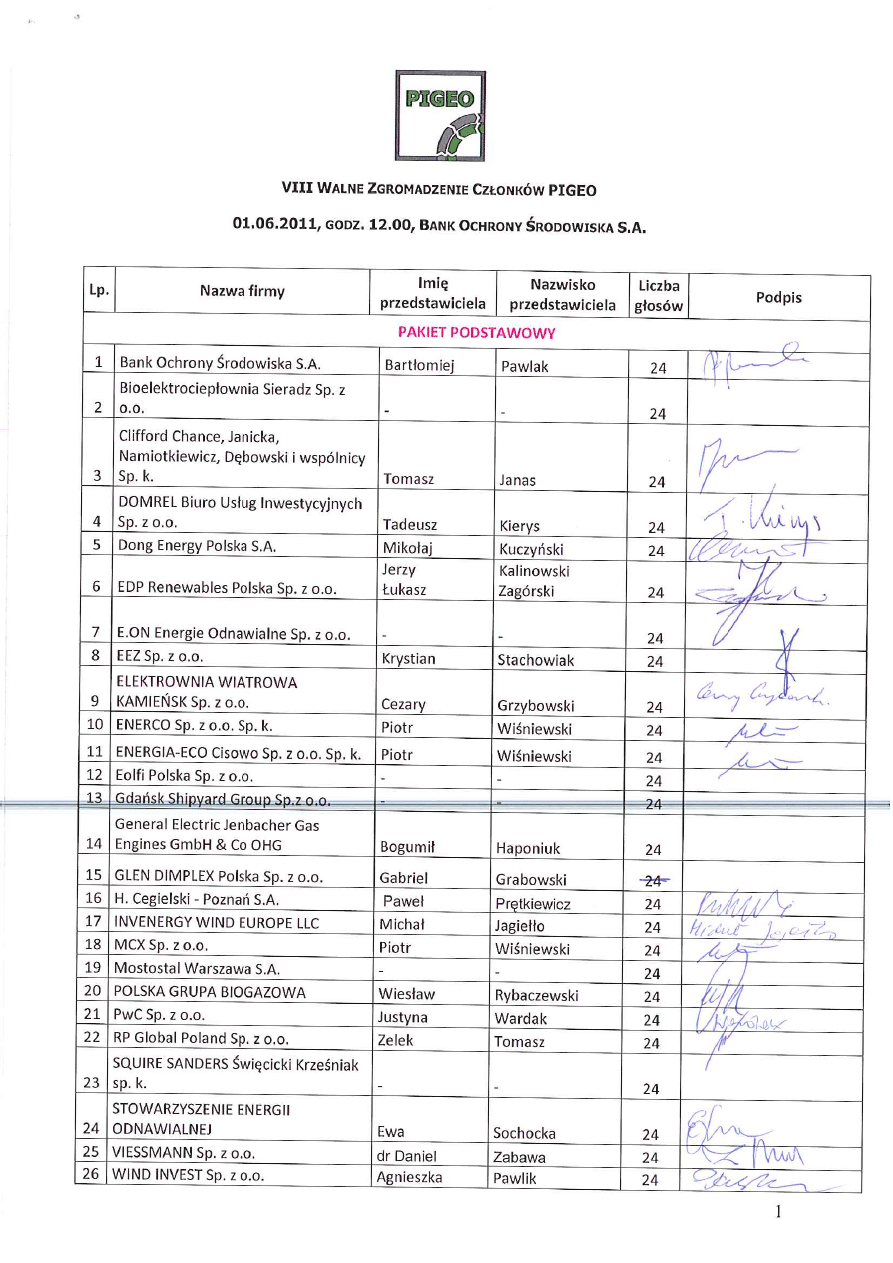 PIGEO
VIII WALNE ZGROMADZENIE CZŁONKÓW PIGEO
01.06.2011, GODZ. 12.00, BANK OCHRONY ŚRODOWISKA S.A.
Lp. Nazwa firmy Imię przedstawiciela Nazwisko przedstawiciela Liczba głosów Podpis
PAKIET PODSTAWOWY
1 Bank Ochrony Środowiska S.A. Bartłomiej Pawlak 24
Bioelektrociepłownia Sieradz Sp. z
2 o.o. - - 24
Clifford Chance, Janicka,
Namiotkiewicz, Dębowski i wspólnicy
3 Sp. k. Tomasz Janas 24
DOMREL Biuro Usług Inwestycyjnych
4 Sp. z o.o. Tadeusz Kierys 24 T. Kierys
5 Dong Energy Polska S.A. Mikołaj Kuczyński 24
Jerzy Kalinowski
6 EDP Renewables Polska Sp. z o.o. Łukasz Zagórski 24
7 E.ON Energie Odnawialne Sp. z o.o. - - 24
8 EEZ Sp. z o.o. Krystian Stachowiak 24
ELEKTROWNIA WIATROWA
9 KAMIEŃSK Sp. z o.o. Cezary Grzybowski 24
10 ENERCO Sp. z o.o. Sp. k. Piotr Wiśniewski 24
11 ENERGIA-ECO Cisowo Sp. z o.o. Sp. k. Piotr Wiśniewski 24
12 Eolfi Polska Sp. z o.o. - - 24
13 Gdańsk Shipyard Group Sp.z o.o. - - 24
General Electric Jenbacher Gas
14 Engines GmbH & Co OHG Bogumił Haponiuk 24
15 GLEN DIMPLEX Polska Sp. z o.o. Gabriel Grabowski 24
16 H. Cegielski - Poznań S.A. Paweł Prętkiewicz 24
17 INVENERGY WIND EUROPE LLC Michał Jagiełło 24
18 MCX Sp. z o.o. Piotr Wiśniewski 24
19 Mostostal Warszawa S.A. - - 24
20 POLSKA GRUPA BIOGAZOWA Wiesław Rybaczewski 24
21 PwC Sp. z o.o. Justyna Wardak 24
22 RP Global Poland Sp. z o.o. Zelek Tomasz 24
SQUIRE SANDERS Święcicki Krześniak
23 sp. k. - - 24
STOWARZYSZENIE ENERGII
24 ODNAWIALNEJ Ewa Sochocka 24
25 VIESSMANN Sp. z o.o. dr Daniel Zabawa 24
26 WIND INVEST Sp. z o.o. Agnieszka Pawlik 24
1